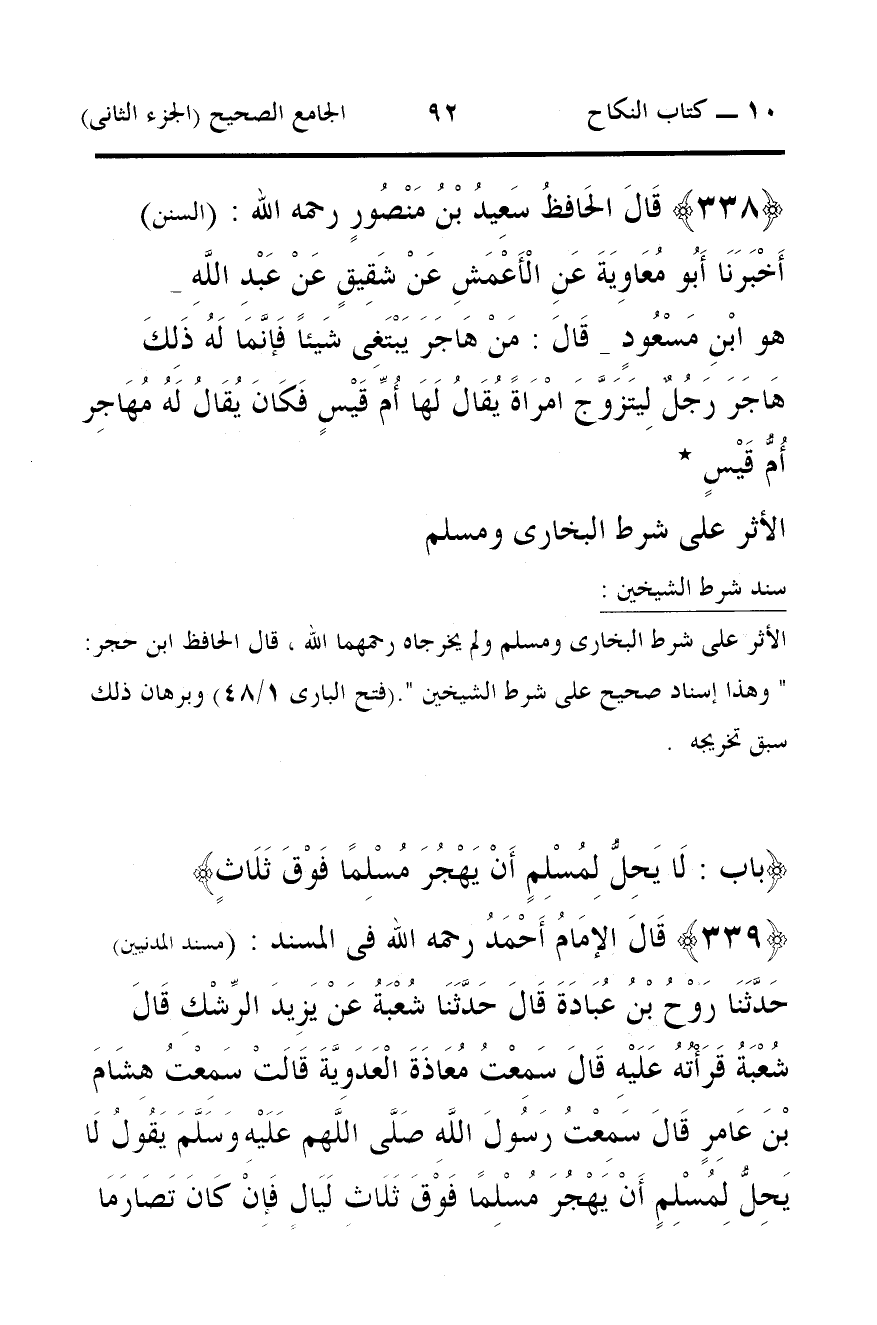 ١٠ ــ كتاب النكاح ٩٢ الجامع الصحيح (الجزء الثانى)
﴿٣٣٨﴾ قَالَ الحَافظُ سَعِيدُ بْنُ مَنْصُورٍ رحمه الله : (السنن)
أَخْبَرَنَا أَبُو مُعَاوِيَةَ عَنِ الْأَعْمَشِ عَنْ شَقِيقٍ عَنْ عَبْدِ اللَّهِ _
هو ابْنِ مَسْعُودٍ _ قَالَ : مَنْ هَاجَرَ يَبْتَغِى شَيئاً فَإِنَّمَا لَهُ ذَلِكَ
هَاجَرَ رَجُلٌ لِيَتَزَوَّجَ امْرَاةً يُقَالُ لَهَا أُمِّ قَيْسٍ فَكَانَ يُقَالُ لَهُ مُهَاجِر
أُمُّ قَيْسٍ *
الأثر على شرط البخارى ومسلم
سند شرط الشيخين :
الأثر على شرط البخارى ومسلم ولم يخرجاه رحمهما الله ، قال الحافظ ابن حجر:
" وهذا إسناد صحيح على شرط الشيخين ".(فتح البارى ٤٨/١) وبرهان ذلك
سبق تخريجه .
﴿باب : لَا يَحِلُّ لِمُسْلِمٍ أَنْ يَهْجُرَ مُسْلِمًا فَوْقَ ثَلَاثٍ﴾
﴿٣٣٩﴾ قَالَ الإِمَامُ أَحْمَدُ رحمه الله فى المسند : (مسند المدنيين)
حَدَّثَنَا رَوْحُ بْنُ عُبَادَةَ قَالَ حَدَّثَنَا شُعْبَةُ عَنْ يَزِيدَ الرِّشْكِ قَالَ
شُعْبَةُ قَرَأْتُهُ عَلَيْهِ قَالَ سَمِعْتُ مُعَاذَةَ الْعَدَوِيَّةَ قَالَتْ سَمِعْتُ هِشَامَ
بْنَ عَامِرٍ قَالَ سَمِعْتُ رَسُولَ اللَّهِ صَلَّى اللَّهم عَلَيْهِ وَسَلَّمَ يَقُولُ لَا
يَحِلُّ لِمُسْلِمٍ أَنْ يَهْجُرَ مُسْلِمًا فَوْقَ ثَلَاثِ لَيَالٍ فَإِنْ كَانَ تَصَارَمَا